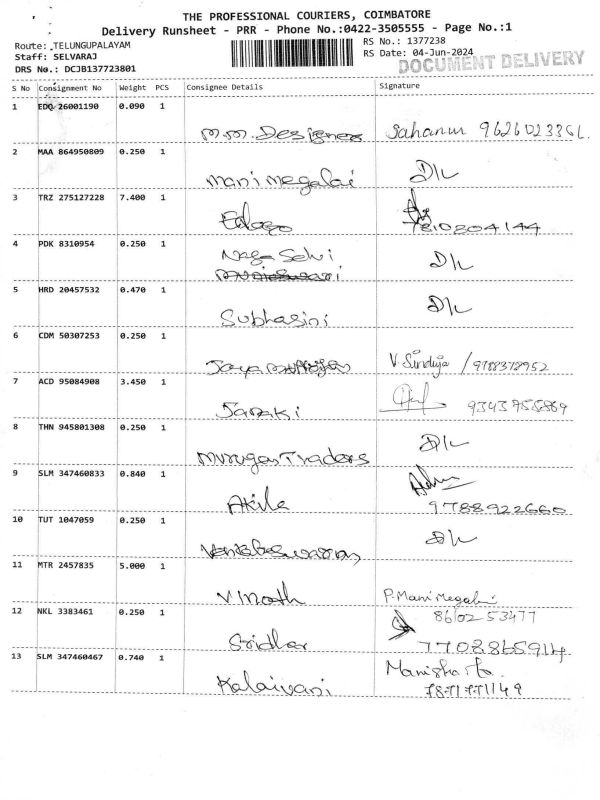 THE PROFESSIONAL COURIERS, COIMBATORE
Delivery Runsheet - PRR - Phone No.:0422-3505555 - Page No.:1
Route: TELUNGUPALAYAM
Staff: SELVARAJ
DRS No.: DCJB137723801
RS No.: 1377238
RS Date: 04-Jun-2024
DOCUMENT DELIVERY
S No Consignment No Weight PCS Consignee Details Signature
1 EDQ 26001190 0.090 1
M.M. Designers Sahanur
2 MAA 864950809 0.250 1
Manimegalai D/L
3 TRZ 275127228 7.400 1
7810204144
4 PDK 8310954 0.250 1
Naga Selvi D/L
5 HRD 20457532 0.470 1
Subhasini D/L
6 CDM 50307253 0.250 1
V. Sinduja / 9788378952
7 ACD 95084908 3.450 1
Janaki
8 THN 945801308 0.250 1
Murugan Traders D/L
9 SLM 347460833 0.840 1
Akila
9788922660
10 TUT 1047059 0.250 1
D/L
11 MTR 2457835 5.000 1
Vinoth P. Mani Megalai
12 NKL 3383461 0.250 1
86102 53477
Sridhar
7708865914
13 SLM 347460467 0.740 1
Kalaivani